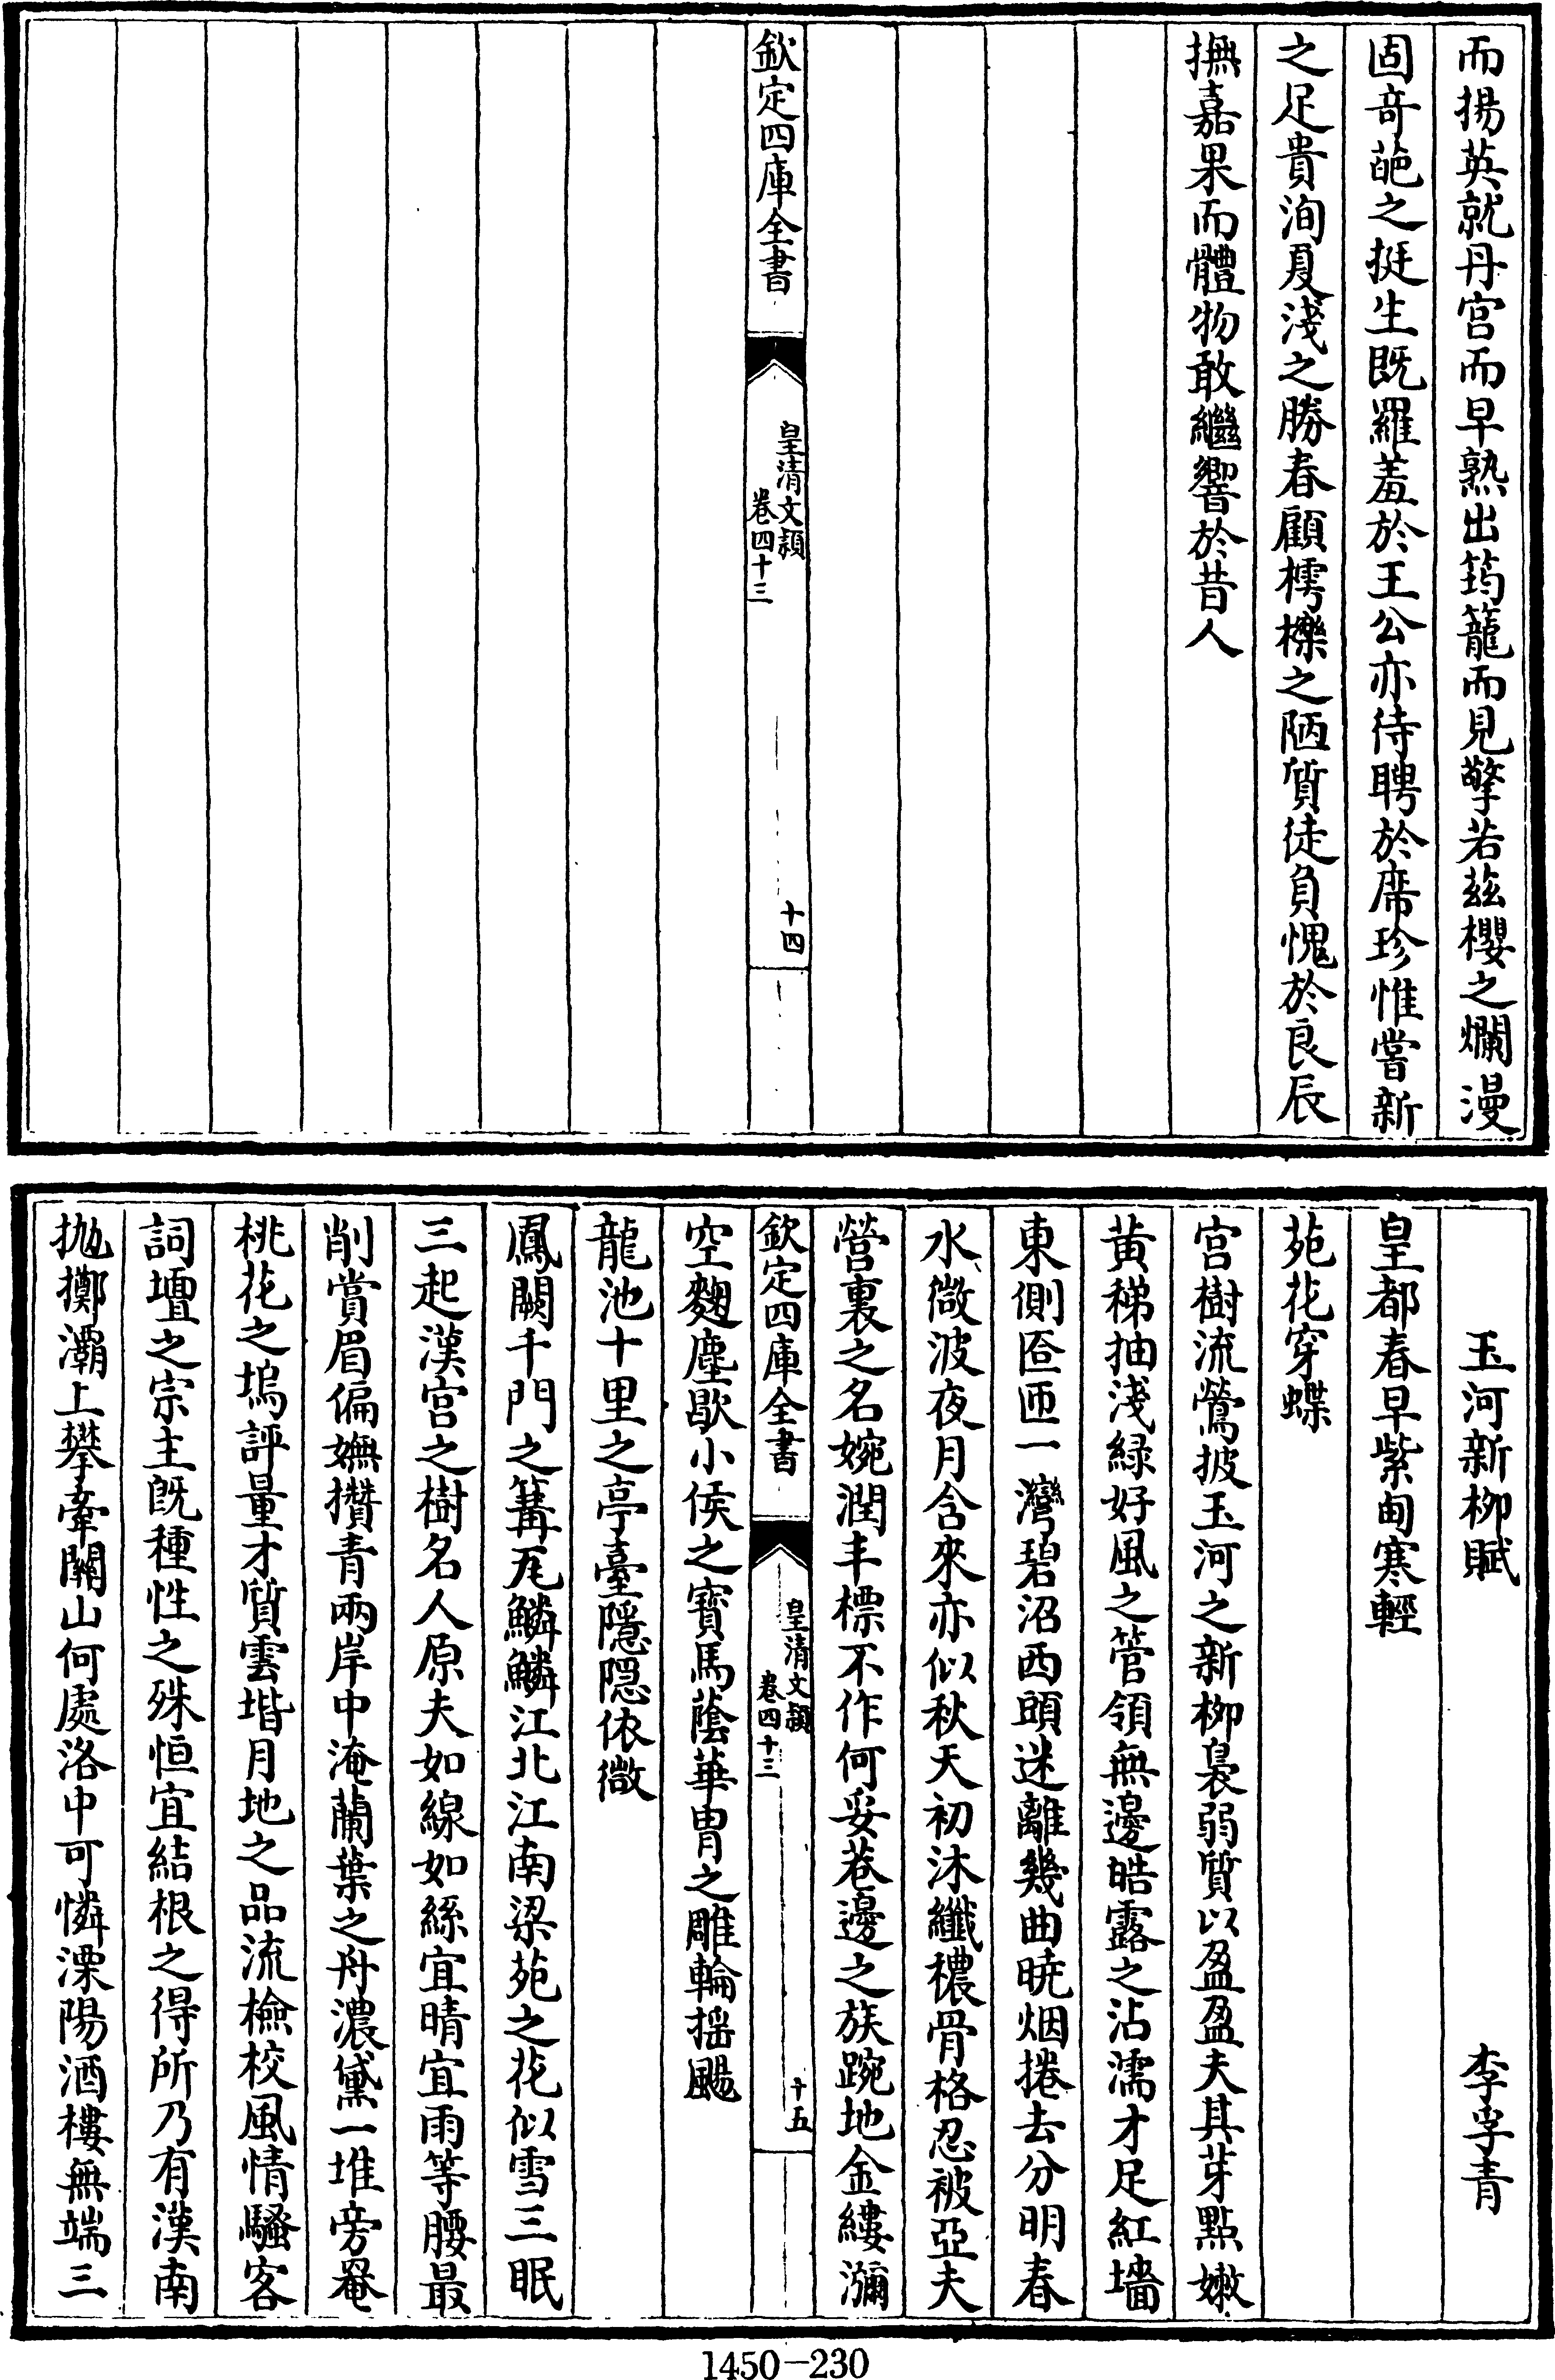 而揚英就丹宫而早熟出筠籠而見擎若兹櫻之爛漫
固奇葩之挺生既羅羞於王公亦待聘於席珍惟嘗新
之足貴洵夏淺之勝春顧樗櫟之陋質徒負愧於良辰
撫嘉果而體物敢繼響於昔人
欽定四庫全書
皇清文頴
卷四十三
十四
玉河新柳賦
李孚青
皇都春早紫甸寒輕
苑花穿蝶
宫樹流鶯披玉河之新柳裊弱質以盈盈夫其芽點嫩
黄稊抽淺緑好風之管領無邊皓露之沾濡才足紅墻
東側匼匝一灣碧沼西頭迷離幾曲曉烟捲去分明春
水微波夜月含來亦似秋天初沐纖穠骨格忍被亞夫
營裏之名婉潤丰標不作何妥巷邊之族踠地金縷瀰
空麴塵歇小侯之寳馬蔭華胄之雕輪揺颺
龍池十里之亭臺隱隱依微
鳳闕千門之篝瓦鱗鱗江北江南梁苑之花似雪三眠
三起漢宫之樹名人原夫如線如絲宜晴宜雨等腰最
削賞眉偏嫵攢青兩岸中淹蘭葉之舟濃黛一堆旁罨
桃花之塢評量才質雲堦月地之品流檢校風情騷客
詞壇之宗主既種性之殊恒宜結根之得所乃有漢南
抛擲灞上攀牽關山何處洛中可憐溧陽酒樓無端三
欽定四庫全書
皇清文頴
卷四十三
十五
1450-230